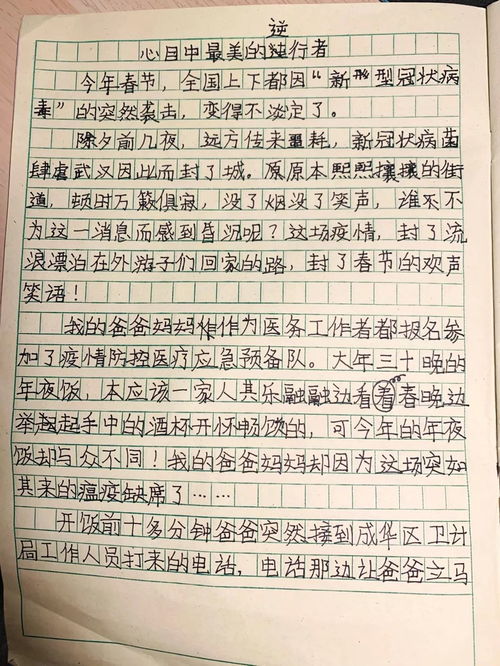 逆
心目中最美的独行者
今年春节,全国上下都因“新形型冠状病
毒”的突然袭击,变得不淡定了。
除夕前几夜,远方传来噩耗,新冠状病菌
肆虐武汉因此而封了城。原原本熙熙攘攘的街
道,顿时万籁俱寂,没了烟没了笑声,谁不不
为这一消息而感到昏沉呢?这场疫情,封了流
浪漂泊在外游子们回家的路,封了春节的欢声
笑语!
我的爸爸妈妈作作为医务工作者都报名参
加了疫情防控医疗应急预备队。大年三十晚的
年夜饭,本应该一家人其乐融融边看着春晚边
举起起手中的酒杯开怀畅饮的,可今年的年夜
饭却与众不同!我的爸爸妈妈却因为这场突如
其来的瘟疫缺席了……
开饭前十多分钟爸爸突然接到成华区卫计
局工作人员打来的电话,电话那边让爸爸立马